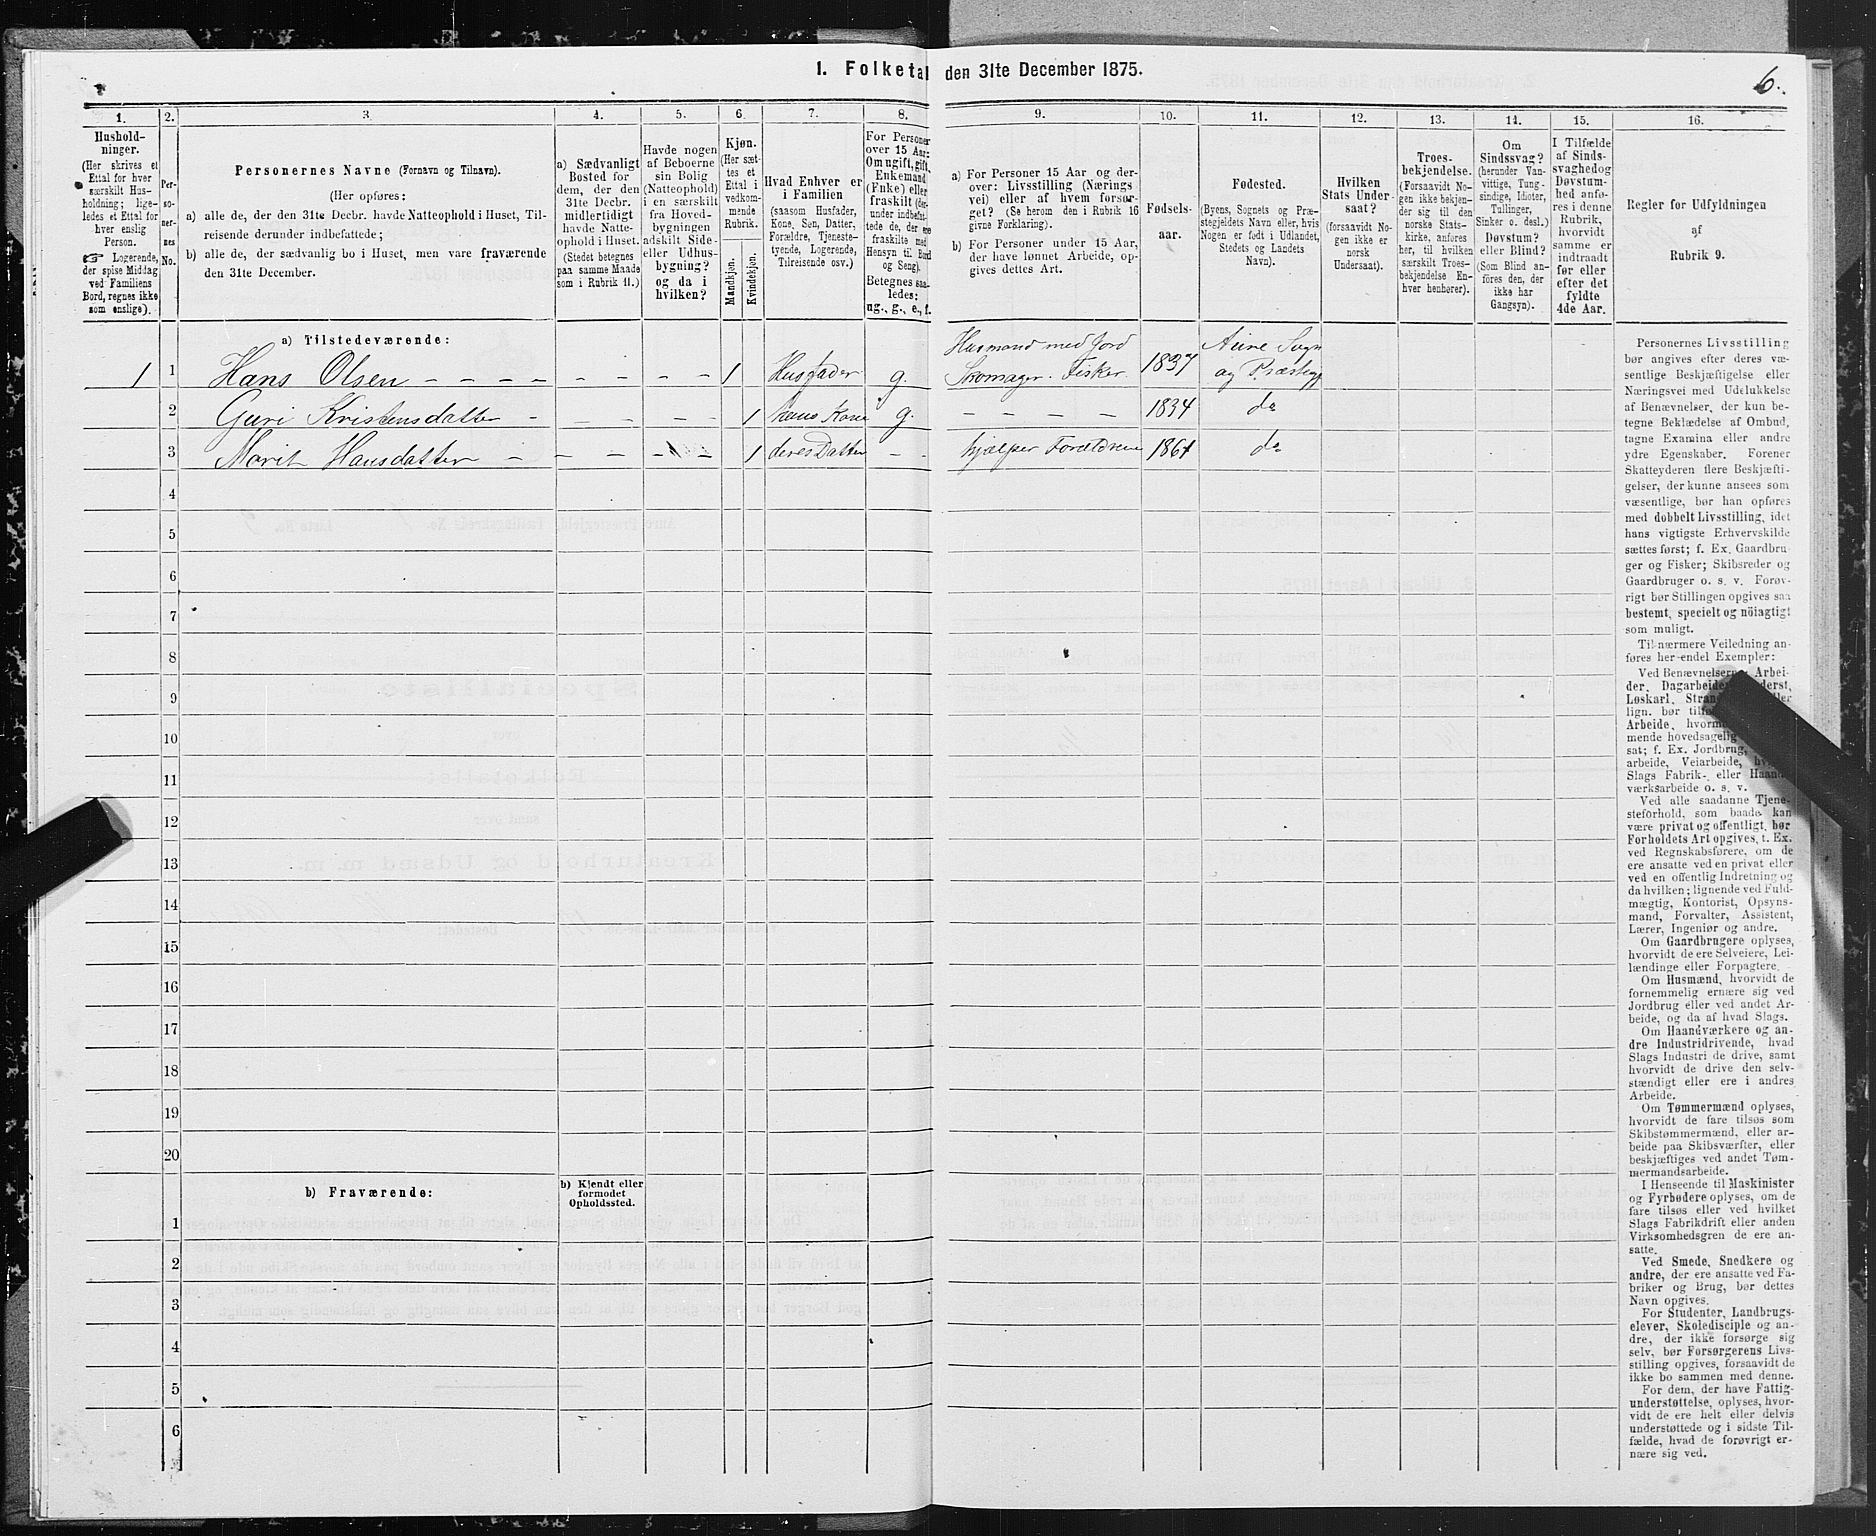 1. Folketal den 31te December 1875.
6.
1. 2. 3. 4. 5. 6. 7. 8. 9. 10. 11. 12. 13. 14. 15. 16.
Hushold-
ninger.
(Her skrives et
Ettal for hver
særskilt Hus-
holdning; lige-
ledes et Ettal for
hver enslig
Person.
☞ Logerende,
der spise Middag
ved Familiens
Bord, regnes ikke
som enslige).
Per-
so-
ner-
nes
No.
Personernes Navne (Fornavn og Tilnavn).
(Her opføres:
a) alle de, der den 31te Decbr. havde Natteophold i Huset, Til-
reisende derunder indbefattede;
b) alle de, der sædvanlig bo i Huset, men vare fraværende
den 31te December.
a) Sædvanligt
Bosted for
dem, der den
31te Decbr.
midlertidigt
havde Natte-
ophold i Huset.
(Stedet betegnes
paa samme Maade
som i Rubrik 11.)
Havde nogen
af Beboerne
sin Bolig
(Natteophold)
i en særskilt
fra Hoved-
bygningen
adskilt Side-
eller Udhus-
bygning?
og da i
hvilken?
Kjøn.
(Her sæt-
tes et
Ettal i
vedkom-
mende
Rubrik.
Mandkjøn.
Kvindekjøn.
Hvad Enhver er
i Familien
(saasom Husfader,
Kone, Søn, Datter,
Forældre, Tjeneste-
tyende, Logerende,
Tilreisende osv.)
For Personer
over 15 Aar:
Om ugift, gift,
Enkemand
(Enke) eller
fraskilt (der-
under indbefat-
tede de, der ere
fraskilte med
Hensyn til Bord
og Seng).
Betegnes saa-
ledes:
ug., g., e., f.
a) For Personer 15 Aar og der-
over: Livsstilling (Nærings
vei) eller af hvem forsør-
get? (Se herom den i Rubrik 16
givne Forklaring).
b) For Personer under 15 Aar,
der have lønnet Arbeide, op-
gives dettes Art.
Fødsels-
aar.
Fødested.
(Byens, Sognets og Præ-
stegjeldets Navn eller, hvis
Nogen er født i Udlandet,
Stedets og Landets
Navn).
Hvilken
Stats Under-
saat?
(forsaavidt No-
gen ikke er
norsk
Undersaat).
Troes-
bekjendelse.
(Forsaavidt No-
gen ikke bekjen-
der sig til den
norske Stats-
kirke, anføres
her, til hvilken
særskilt Troes-
bekjendelse En-
hver henhører).
Om
Sindssvag?
(herunder Van-
vittige, Tung-
sindige, Idioter,
Tullinger,
Sinker o. desl.)
Døvstum?
eller Blind?
(Som Blind an-
føres den, der
ikke har
Gangsyn).
I Tilfælde
af Sinds-
svaghed og
Døvstum-
hed anfø-
res i denne
Rubrik,
hvorvidt
samme er
indtraadt
før eller
efter det
fyldte
4de Aar.
Regler for Udfyldningen
af
Rubrik 9.
a) Tilstedeværende:
1 1 Hans Olsen - - - - - - - 1 Husfader g. Husmand med Jord Skomager. Fisker 1837 Aure Sogn og Præstegj
2 Guri Kristensdatter - - - - - 1 hans Kone g. - - - - 1834 do
3 Marit Hansdatter - - - - - 1 deres Datter - - hjælper Forældrene 1861 do
4
5
6
7
8
9
10
11
12
13
14
15
16
17
18
19
20
b) Fraværende:
b) Kjendt eller
formodet
Opholdssted.
1
2
3
4
5
6
Personernes Livsstilling
bør angives efter deres væ-
sentlige Beskjæftigelse eller
Næringsvei med Udelukkelse
af Benævnelser, der kun be-
tegne Beklædelse af Ombud,
tagne Examina eller andre
ydre Egenskaber. Forener
Skatteyderen flere Beskjæfti-
gelser, der kunne ansees som
væsentlige, bør han opføres
med dobbelt Livsstilling, idet
hans vigtigste Erhvervskilde
sættes først; f. Ex. Gaardbru-
ger og Fisker; Skibsreder og
Gaardbruger o. s. v. Forøv-
rigt bør Stillingen opgives saa
bestemt, specielt og nöiagtigt
som muligt.
Til nærmere Veiledning an-
føres her endel Exempler:
Ved Benævnelserne Arbei-
der, Dagarbeider,
Løskarl,
lign. bør
Arbeide,
mende hovedsagelig
sat; f. Ex. Jordbrug,
arbeide, Veiarbeide,
Slags Fabrik- eller Haand-
værksarbeide o. s. v.
Ved alle saadanne Tjene-
steforhold, som baade kan
være privat og offentligt, bør
Forholdets Art opgives, t. Ex.
ved Regnskabsførere, om de
ere ansatte ved en privat eller
ved en offentlig Indretning og
da hvilken; lignende ved Fuld-
mægtig, Kontorist, Opsyns-
mand, Forvalter, Assistent,
Lærer, Ingeniør og andre.
Om Gaardbrugere oplyses,
hvorvidt de ere Selveiere, Lei-
lændinge eller Forpagtere.
Om Husmænd, hvorvidt de
fornemmelig ernære sig ved
Jordbrug eller ved andet Ar-
beide, og da af hvad Slags.
Om Haandværkere og an-
dre Industridrivende, hvad
Slags Industri de drive, samt
hvorvidt de drive den selv-
stændigt eller ere i andres
Arbeide.
Om Tømmermænd oplyses,
hvorvidt de fare tilsøs som
Skibstømmermænd, eller ar-
beide paa Skibsværfter, eller
beskjæftiges ved andet Tøm-
mermandsarbeide.
I Henseende til Maskinister
og Fyrbødere oplyses, om de
fare tilsøs eller ved hvilket
Slags Fabrikdrift eller anden
Virksomhedsgren de ere an-
satte.
Ved Smede, Snedkere og
andre, der ere ansatte ved Fa-
briker og Brug, bør dettes
Navn opgives.
For Studenter, Landbrugs-
elever, Skoledisciple og an-
dre, der ikke forsørge sig
selv, bør Forsørgerens Livs-
stilling opgives, forsaavidt de
ikke bo sammen med denne.
For dem, der have Fattig-
understøttelse, oplyses, hvor-
vidt de ere helt eller delvis
understøttede og i sidste Til-
fælde, hvad de forøvrigt er-
nære sig ved.